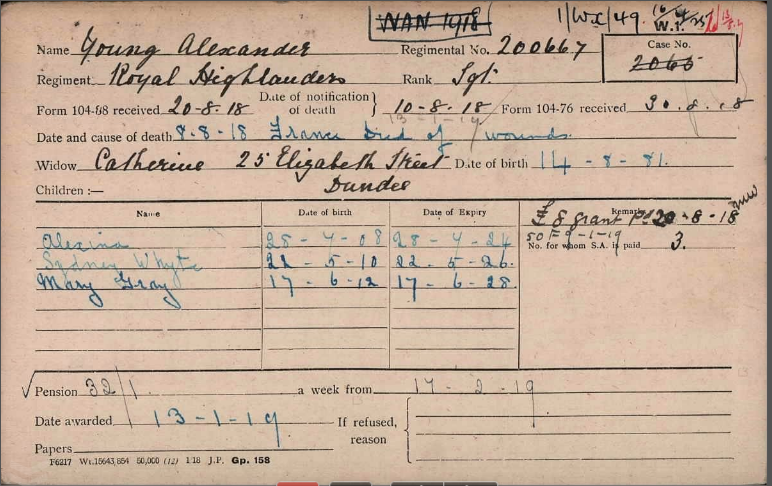 WAN 1918 1/WX/49.
W.I.
Name Young Alexander Regimental No. 200667 Case No.
2065
Regiment Royal Highlanders Rank Sgt.
Form 104-88 received 20-8-18 Date of notification of death } 10-8-18 Form 104-76 received 30.8.18
13-1-19
Date and cause of death 9-8-18 France Died of wounds.
Widow Catherine 25 Elizabeth Street Date of birth 14-8-81.
Dundee
Children :—
Name Date of birth Date of Expiry Remarks
£8 grant pd 20-8-18
Alexina 28-4-08 28-4-24 50F9-1-19
No. for whom S.A. is paid 3.
Sydney Whyte 22-5-10 22-5-26.
Mary Gray 17-6-12 17-6-28.
Pension 32/1. a week from 17-2-19
Date awarded 13-1-19 If refused, reason
Papers
F6217 Wt.15643/854 50,000 (12) 1/18 J.P. Gp. 158